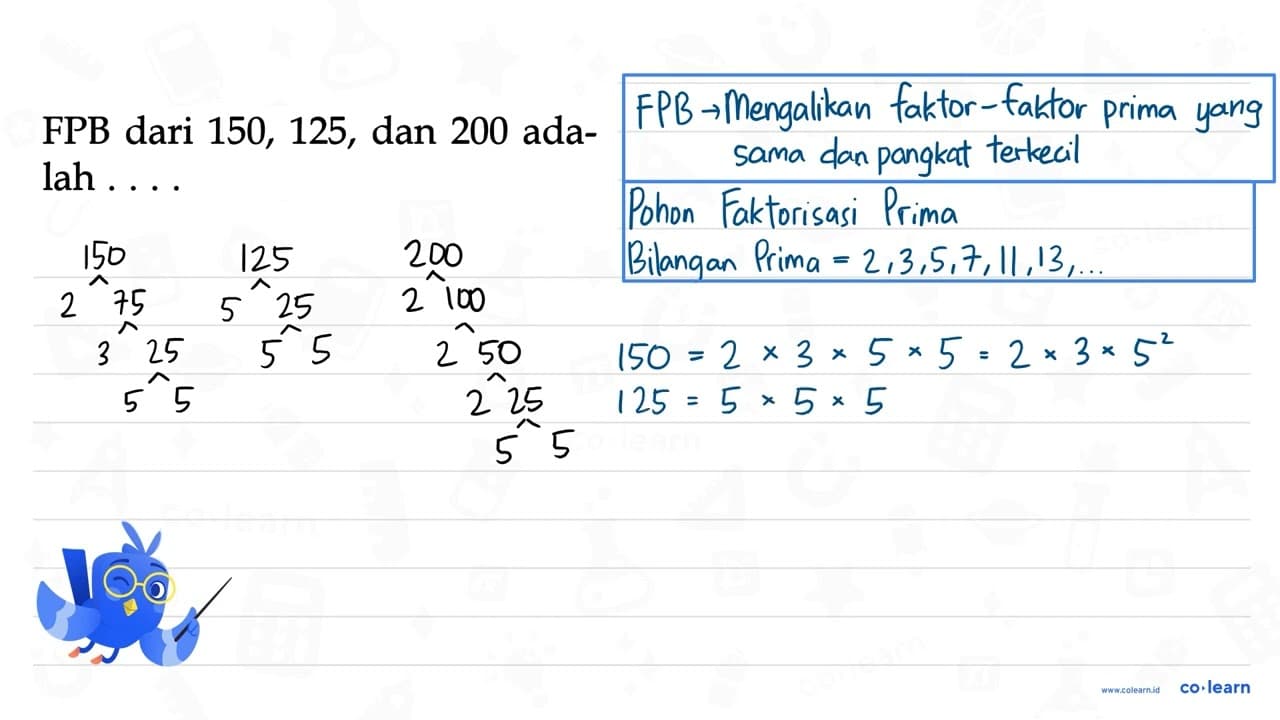 FPB dari 150, 125, dan 200 ada-
lah . . . .
FPB → Mengalikan faktor-faktor prima yang
sama dan pangkat terkecil
Pohon Faktorisasi Prima
Bilangan Prima = 2, 3, 5, 7, 11, 13, ...
150
2 75
3 25
5 5
125
5 25
5 5
200
2 100
2 50
2 25
5 5
150 = 2 × 3 × 5 × 5 = 2 × 3 × 5²
125 = 5 × 5 × 5
co·learn
co·learn
co·learn
co·learn
www.colearn.id
co·learn